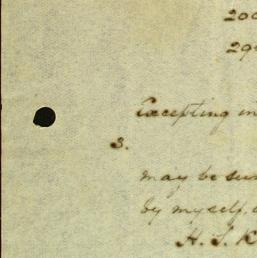 200
29
Excepting in
3.
may be sur
by myself,
H. S. K